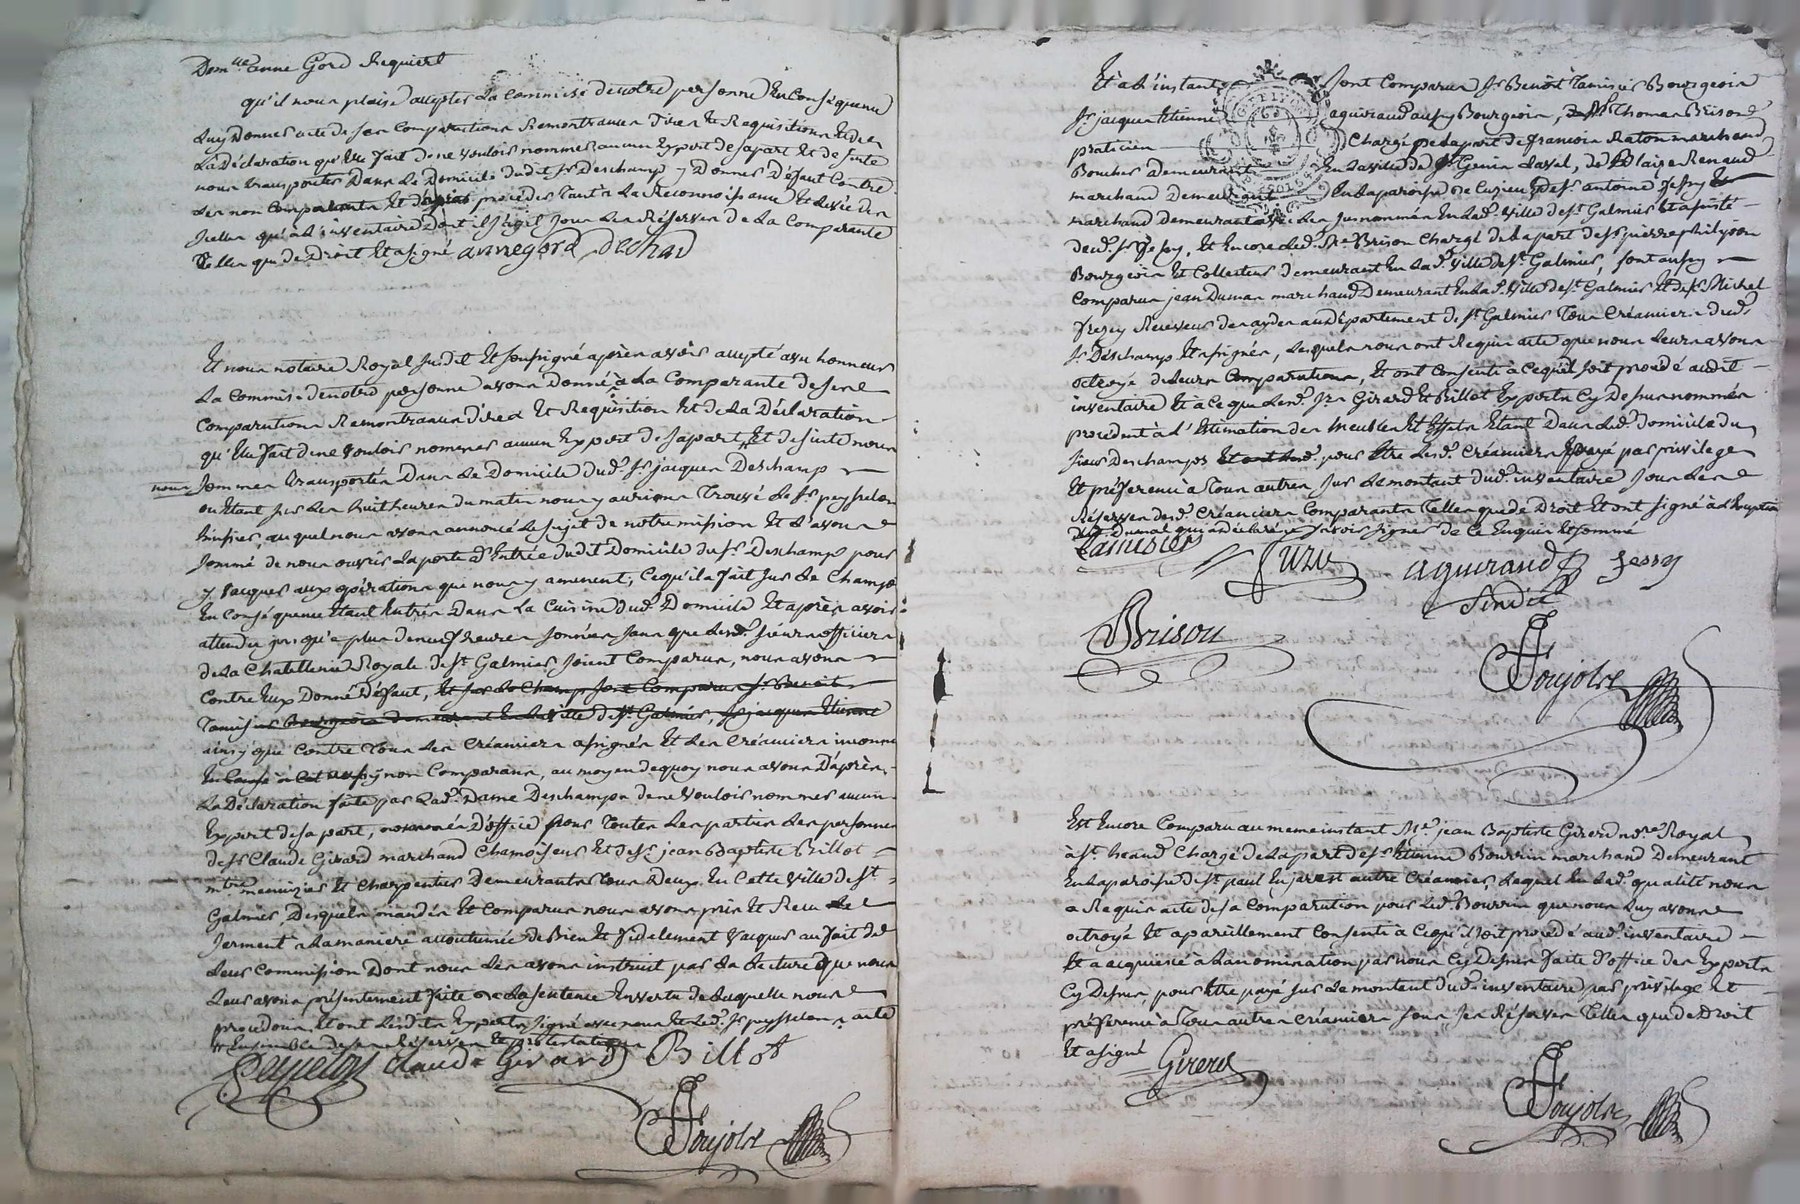 Dom.lle anne Gord Requiert
qu'il nous plaise accepter La Commise de notre personne En Consequence
Luy Donner acte de ses Comparutions Remontrances Dires Et Requisitions Et de
La Déclaration qu'elle fait de ne vouloir nommer aucun Expert de sa part Et de suite
nous transporter Dans Le Domicile dudit Sr Deschamp y Donner Défaut Contre
Les non Comparants Et procéder Tant a La Reconnoissance Et Levée des
scellés qu'à L'inventaire Dont il s'agit sous Les Réserves de La Comparante
Telles que de Droit Et a signé anne gord Dechad
Et nous notaire Royal susdit Et soussigné après avoir accepté avec honneur
La Commise de notre personne avons Donné à La Comparante de ses
Comparutions Remontrances dires Et Requisition Et de La Déclaration
qu'elle fait de ne vouloir nommer aucun Expert de sa part, Et de suite nous
nous sommes transportés Dans Le Domicile dud. Sr jacques Deschamp
ou Etant sur Les huit heures du matin nous y aurions Trouvé Le Sr peysselon
huissier, auquel nous avons annoncé Le sujet de notre mission Et L'avons
sommé de nous ouvrir La porte d'Entrée dudit Domicile du Sr Deschamps pour
y vacquer aux opérations que nous y amenent, Ce qu'il a fait sur Le Champ
En Conséquence Etant Entrés Dans La Cuisine dud. Domicile Et après avoir
attendu jusqu'a plus de neuf heures sonnées sans que Lesd. sieurs officiers
de La Chatellenie Royale de St Galmier soient Comparus, nous avons
Contre Eux Donné Défaut, Et sur Le Champ sont Comparus Sr Benoit
Tamisier Bourgeois demeurant En La ville de St Galmier, Sr jacques Etienne
ainsy que Contre Tous Les Créanciers assignés Et Les Créanciers inconnus
non Comparans, au moyen de quoy nous avons D'après
La Déclaration faite par Lad. Dame Deschamps de ne vouloir nommer aucun
Expert de sa part, nommés D'office pour Toutes Les parties Les personnes
de Sr Claude Girard marchand Chamoiseur Et de Sr jean Baptiste Billot
mtre menuizier Et Charpentier Demeurants Tous Deux En Cette ville de St
Galmier, Desquels mandés Et Comparus nous avons pris Et Recu Le
serment a La maniere accoutumée de Bien Et fidelement vacquer au fait de
Leur Commission Dont nous Les avons instruit par La Lecture que nous
Leur avons présentement faite de La sentence En vertu de Laquelle nous
procedons, Et ont Lesdits Experts signé avec nous Et Led. Sr peysselon acte
Ensemble de ses Réserves Et protestations
Peysselon Claude Girard Billot
Poujolre
Et à L'instant sont Comparus Sr Benoit Tamisier Bourgeois
Sr jacques Etienne aguiraud aussy Bourgeois, Thomas Brison
praticien Chargé de La part de francois Raton marchand
Boucher demeurant En La ville de St Genis Laval, de Blaize Renaud
marchand Demeurant En La paroisse de Cuzieu Et de Sr antoine Jessy
marchand demeurant Les susnommés En Lad. ville de St Galmier Et assisté
dud. Sr Jessy, Et Encore Led. Me Brison Chargé de La part de Sr pierre philypon
Bourgeois Et Collecteur demeurant En Lad. ville de St Galmier, sont aussy
Comparus jean Dumas marchand Demeurant En Lad. Ville de St Galmier Et de Sr Michel
Receveur des aydes au Département de St Galmier Tous Créanciers dud.
Sr Deschamps Et assignés, Lesquels nous ont Requis acte que nous Leur avons
octroyé de Leurs Comparutions, Et ont Consenti a Ce qu'il soit procédé audit
inventaire Et a Ce que Lesd. Srs Girard Et Billot Experts Cy Dessus nommés
procedent à L'Estimation des Meubles Et Effets Etant Dans Led. Domicile du
Sieur Deschamps pour Etre Lesd. Créanciers payé par privilege
Et préference à Tous autres sur Le montant dud. inventaire sous Les
Réserves desd. Créanciers Comparants Telles que de Droit Et ont signé a L'Exception
dud. Dumas qui a déclaré ne savoir signer de Ce Enquis Et sommé
Tamisier Suzu aguiraud Jessy
Sindic
Brison
Poujolre
Est Encore Comparu au meme instant Me jean Baptiste Girerd nore Royal
à St heand Chargé de La part de Sr Etienne Bourrin marchand Demeurant
En La paroisse de St paul En jarest autre Créancier, Lequel En Lad. qualité nous
a Requis acte de sa Comparution pour Led. Bourrin que nous Luy avons
octroyé Et a pareillement Consenti à Ce qu'il soit procédé aud. inventaire
Et a acquiescé à La nomination par nous Cy Dessus faite d'office des Experts
Cy Dessus, pour Etre payé sur Le montant dud. inventaire par privilege Et
préference à Tous autres Créanciers sous ses Réserves Telles que de Droit
Et a signé Girerd
Poujolre